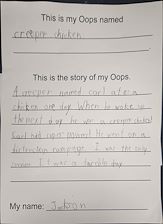 This is my Oops named
creeper chicken
This is the story of my Oops.
A creeper named carl ate a
chicken one day. When he woke up
the next day he was a creeper chicken
Carl had super powers! He went on a
distruction rampage. I was the only
It was a terrible day.
My name: Jackson